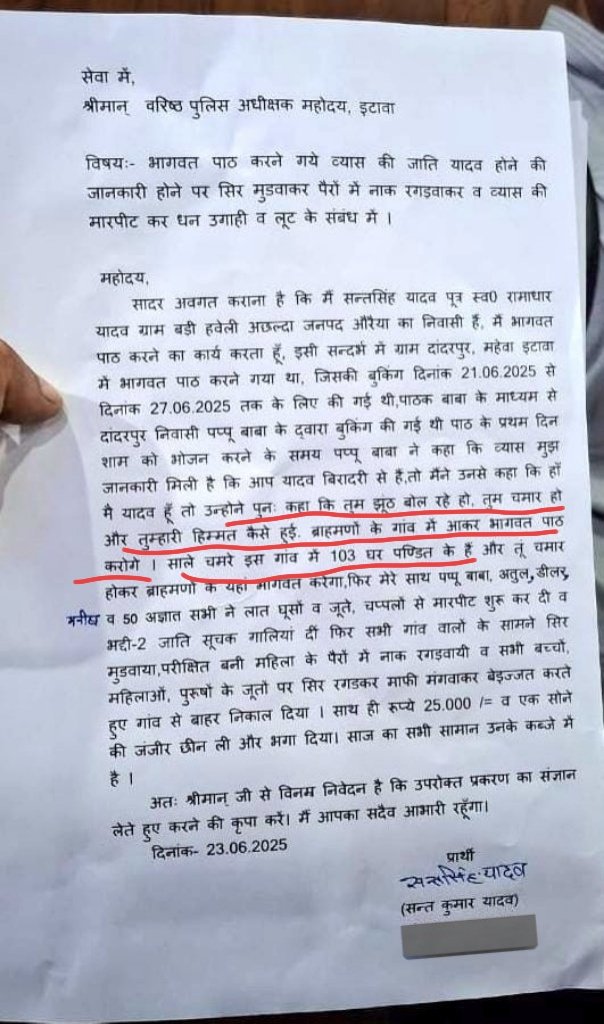 सेवा में,
श्रीमान् वरिष्ठ पुलिस अधीक्षक महोदय, इटावा
विषयः- भागवत पाठ करने गये व्यास की जाति यादव होने की
जानकारी होने पर सिर मुडवाकर पैरों में नाक रगडवाकर व व्यास की
मारपीट कर धन उगाही व लूट के संबंध में ।
महोदय,
सादर अवगत कराना है कि मैं सन्तसिंह यादव पुत्र स्व0 रामाधार
यादव ग्राम बड़ी हवेली अछल्दा जनपद औरैया का निवासी हैं, मैं भागवत
पाठ करने का कार्य करता हूँ, इसी सन्दर्भ में ग्राम दांदरपुर, महेवा इटावा
में भागवत पाठ करने गया था, जिसकी बुकिंग दिनांक 21.06.2025 से
दिनांक 27.06.2025 तक के लिए की गई थी,पाठक बाबा के माध्यम से
दांदरपुर निवासी पप्पू बाबा के द्वारा बुकिंग की गई थी पाठ के प्रथम दिन
शाम को भोजन करने के समय पप्पू बाबा ने कहा कि व्यास मुझ
जानकारी मिली है कि आप यादव बिरादरी से हैं,तो मैंने उनसे कहा कि हाँ
मै यादव हूँ तो उन्होने पुनः कहा कि तुम झूंठ बोल रहे हो, तुम चमार हो
और तुम्हारी हिम्मत कैसे हुई. ब्राहमणों के गांव में आकर भागवत पाठ
करोगे । साले चमरे इस गांव में 103 घर पण्डित के हैं और तूं चमार
होकर ब्राहमणों के यहां भागवत करेगा,फिर मेरे साथ पप्पू बाबा, अतुल, डीलर,
मनीष व 50 अज्ञात सभी ने लात घूसों व जूते, चप्पलों से मारपीट शुरू कर दी व
भद्दी-2 जाति सूचक गालियां दीं फिर सभी गांव वालों के सामने सिर
मुडवाया,परीक्षित बनी महिला के पैरों में नाक रगड़वायी व सभी बच्चों,
महिलाओं, पुरुषों के जूतों पर सिर रगडकर माफी मंगवाकर बेइज्जत करते
हुए गांव से बाहर निकाल दिया । साथ ही रूप्ये 25.000 /= व एक सोने
की जंजीर छीन ली और भगा दिया। साज का सभी सामान उनके कब्जे में
है ।
अतः श्रीमान् जी से विनम्र निवेदन है कि उपरोक्त प्रकरण का संज्ञान
लेते हुए करने की कृपा करें। मैं आपका सदैव आभारी रहूँगा।
दिनांक- 23.06.2025
प्रार्थी
सन्तसिंह यादव
(सन्त कुमार यादव)